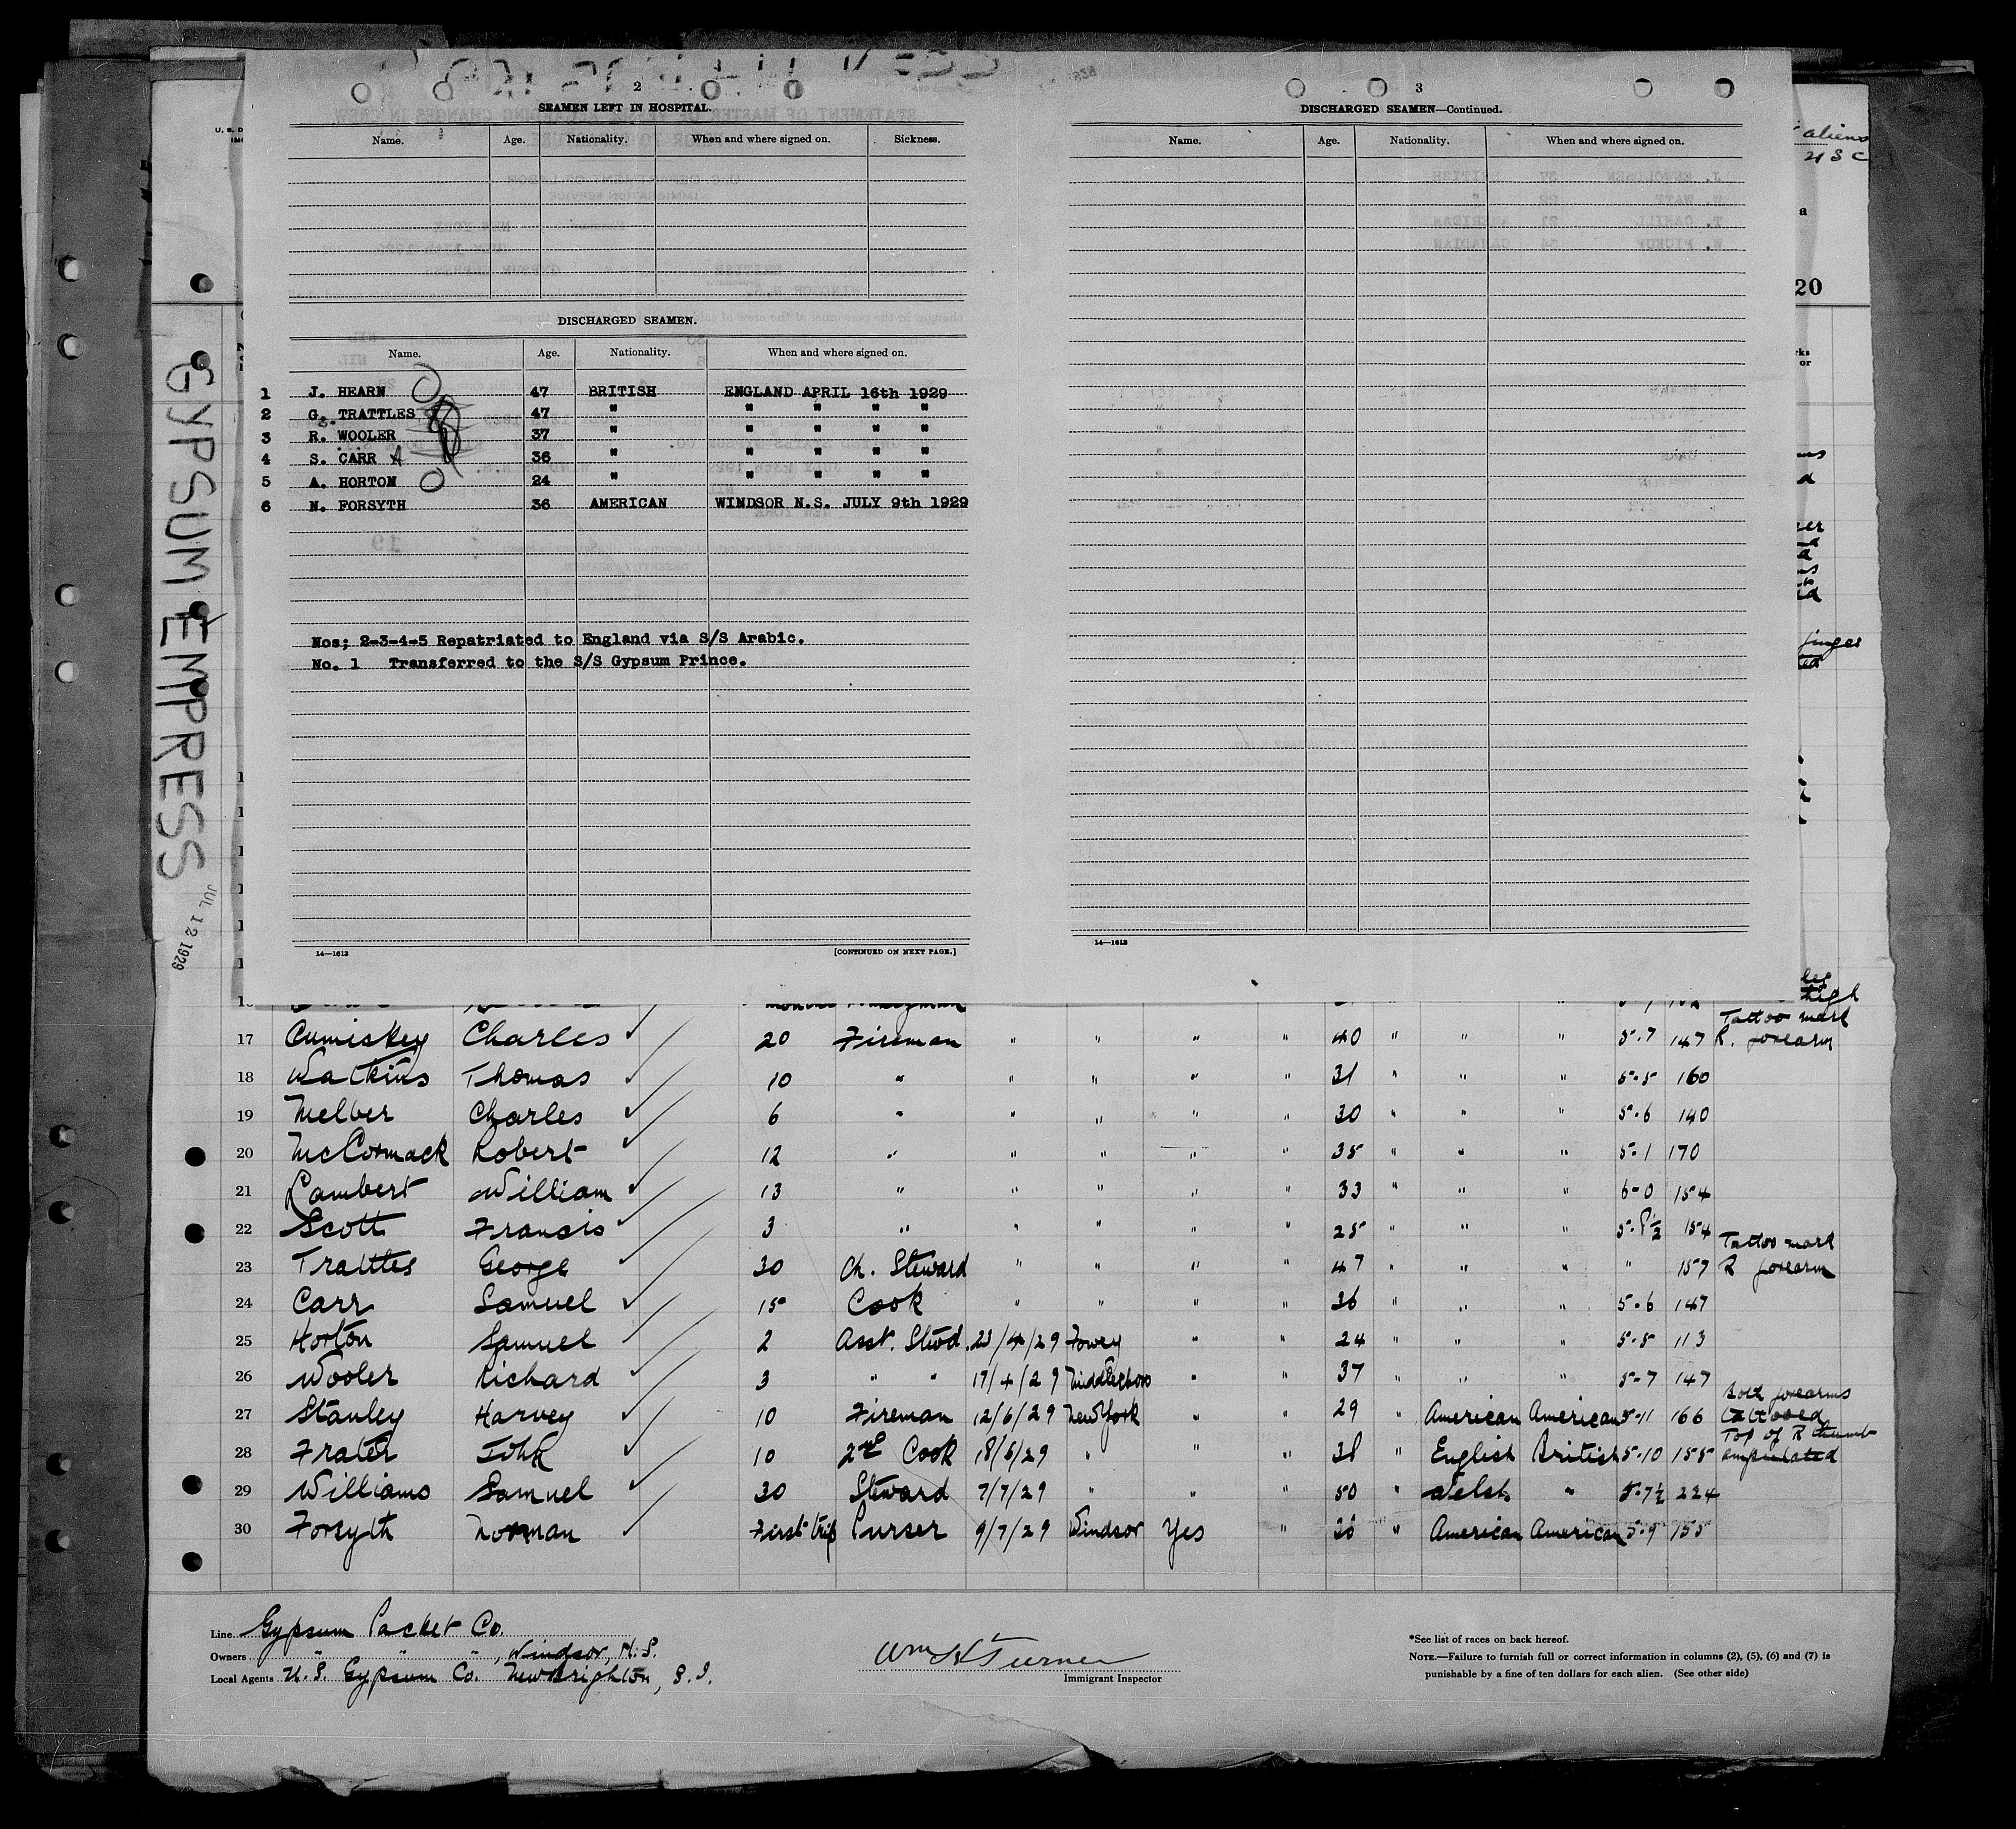 2
SEAMEN LEFT IN HOSPITAL.
Name. Age. Nationality. When and where signed on. Sickness.
DISCHARGED SEAMEN.
Name. Age. Nationality. When and where signed on.
1 J. HEARN 47 BRITISH ENGLAND APRIL 16th 1929
2 G. TRATTLES 47 " " " " "
3 R. WOOLER 37 " " " " "
4 S. CARR 36 " " " " "
5 A. HORTON 24 " " " " "
6 N. FORSYTH 36 AMERICAN WINDSOR N.S. JULY 9th 1929
Nos; 2-3-4-5 Repatriated to England via S/S Arabic.
No. 1 Transferred to the S/S Gypsum Prince.
14—1612 [CONTINUED ON NEXT PAGE.]
3
DISCHARGED SEAMEN—Continued.
Name. Age. Nationality. When and where signed on.
14—1612
aliens
USC
a
20
finger
GYPSUM EMPRESS
JUL 12 1929
17 Cumiskey Charles 20 Fireman " " " " 40 " " " 5-7 147 Tattoo mark R. forearm
18 Watkins Thomas 10 " " " " " 31 " " " 5-5 160
19 Melber Charles 6 " " " " " 30 " " " 5-6 140
20 McCormack Robert 12 " " " " " 35 " " " 5-1 170
21 Lambert William 13 " " " " " 33 " " " 6-0 154
22 Scott Francis 3 " " " " " 25 " " " 5-8½ 154
23 Trattles George 30 Ch. Steward " " " " 47 " " " " 157 Tattoo mark R forearm
24 Carr Samuel 15 Cook " " " " 36 " " " 5-6 147
25 Horton Samuel 2 Asst. Stwd. 23/4/29 Fowey " " 24 " " " 5-5 113
26 Wooler Richard 3 " " 17/4/29 Middlesboro " " 37 " " " 5-7 147
27 Stanley Harvey 10 Fireman 12/6/29 New York " " 29 " American American 5-11 166 Both forearms tattooed
28 Frater John 10 2nd Cook 18/6/29 " " " 38 " English British 5-10 155 Top of R thumb amputated
29 Williams Samuel 30 Steward 7/7/29 " " " 50 " Welsh " 5-7½ 224
30 Forsyth Norman First trip Purser 9/7/29 Windsor Yes " 36 " American American 5-9 155
Line Gypsum Packet Co.
Owners " " " , Windsor, N.S.
Local Agents U.S. Gypsum Co. New Brighton, S.I.
Wm H Turner
Immigrant Inspector
*See list of races on back hereof.
NOTE.—Failure to furnish full or correct information in columns (2), (5), (6) and (7) is
punishable by a fine of ten dollars for each alien. (See other side)